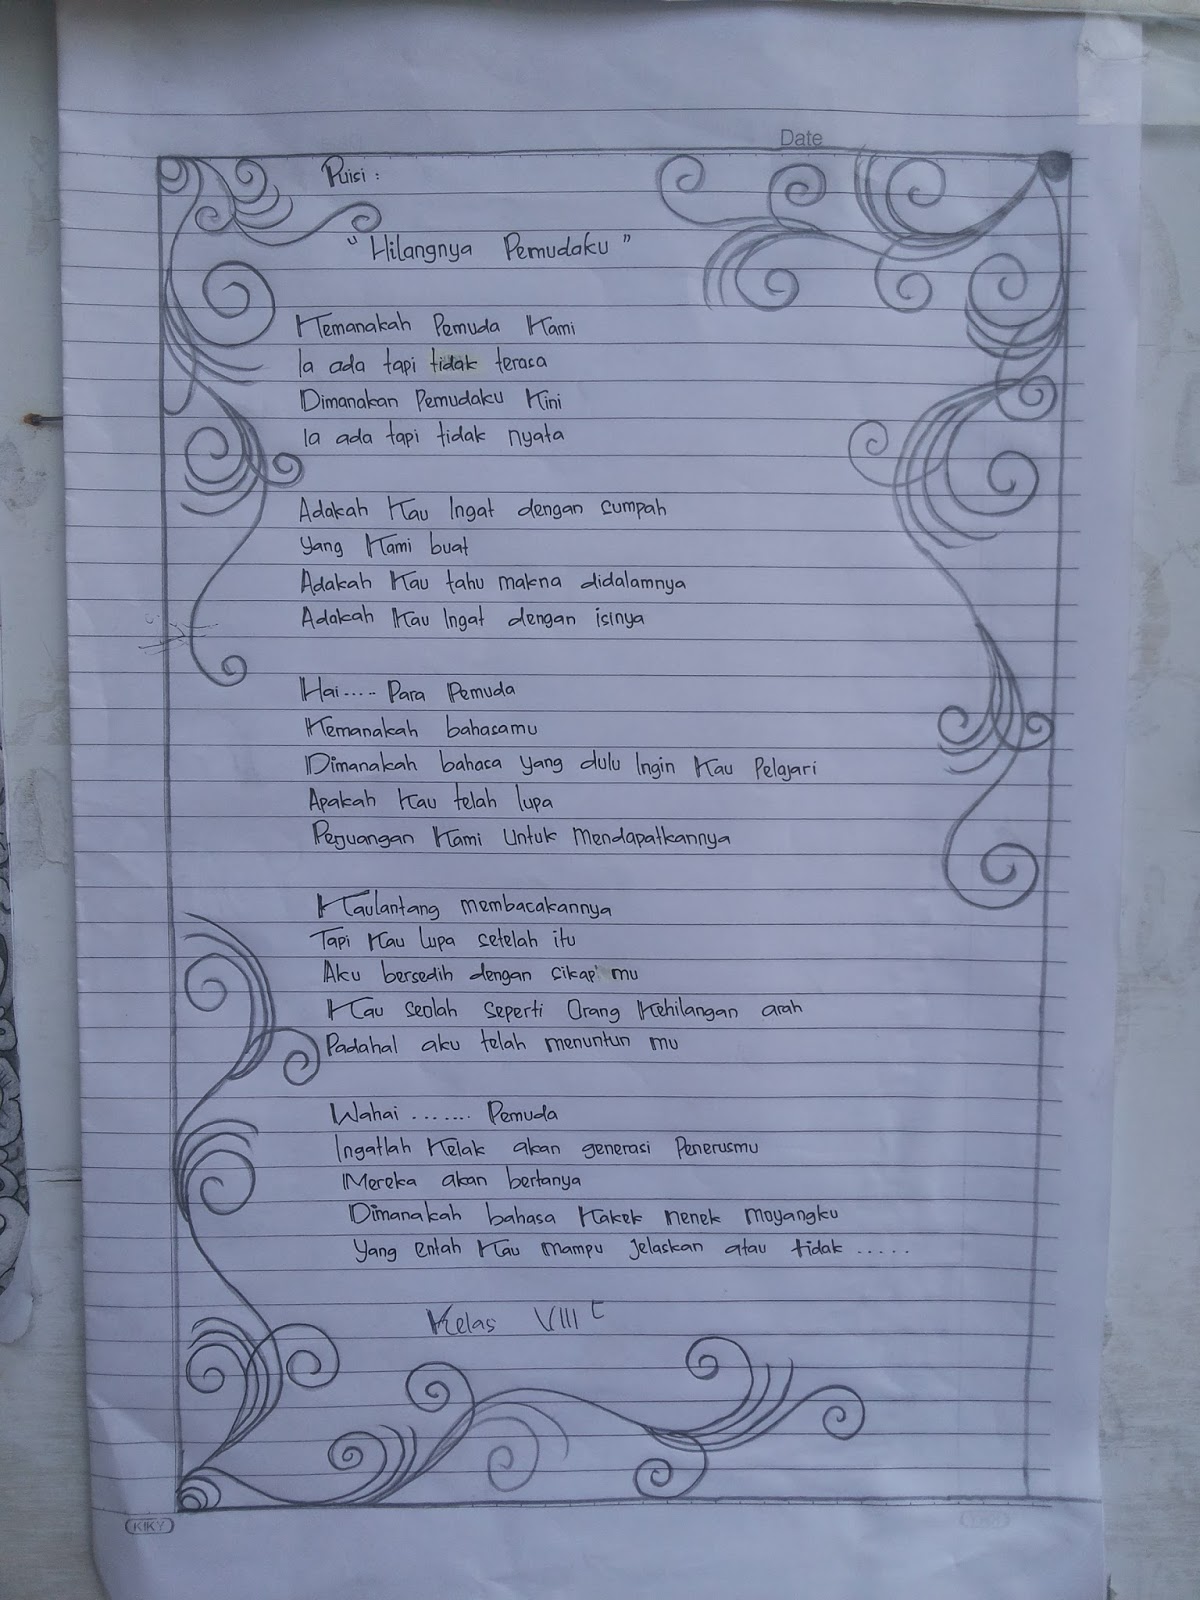 Date
Puisi :
"Hilangnya Pemudaku"
Kemanakah Pemuda Kami
Ia ada tapi tidak terasa
Dimanakan Pemudaku Kini
Ia ada tapi tidak nyata
Adakah Kau Ingat dengan sumpah
yang Kami buat
Adakah Kau tahu makna didalamnya
Adakah Kau Ingat dengan isinya
Hai..... Para Pemuda
Kemanakah bahasamu
Dimanakah bahasa yang dulu Ingin Kau Pelajari
Apakah Kau telah lupa
Perjuangan Kami Untuk Mendapatkannya
Kaulantang membacakannya
Tapi Kau lupa setelah itu
Aku bersedih dengan sikap mu
Kau seolah seperti Orang Kehilangan arah
Padahal aku telah menuntun mu
Wahai ....... Pemuda
Ingatlah Kelak akan generasi Penerusmu
Mereka akan bertanya
Dimanakah bahasa Kakek nenek moyangku
Yang entah Kau mampu jelaskan atau tidak .....
Kelas VIII
KIKY